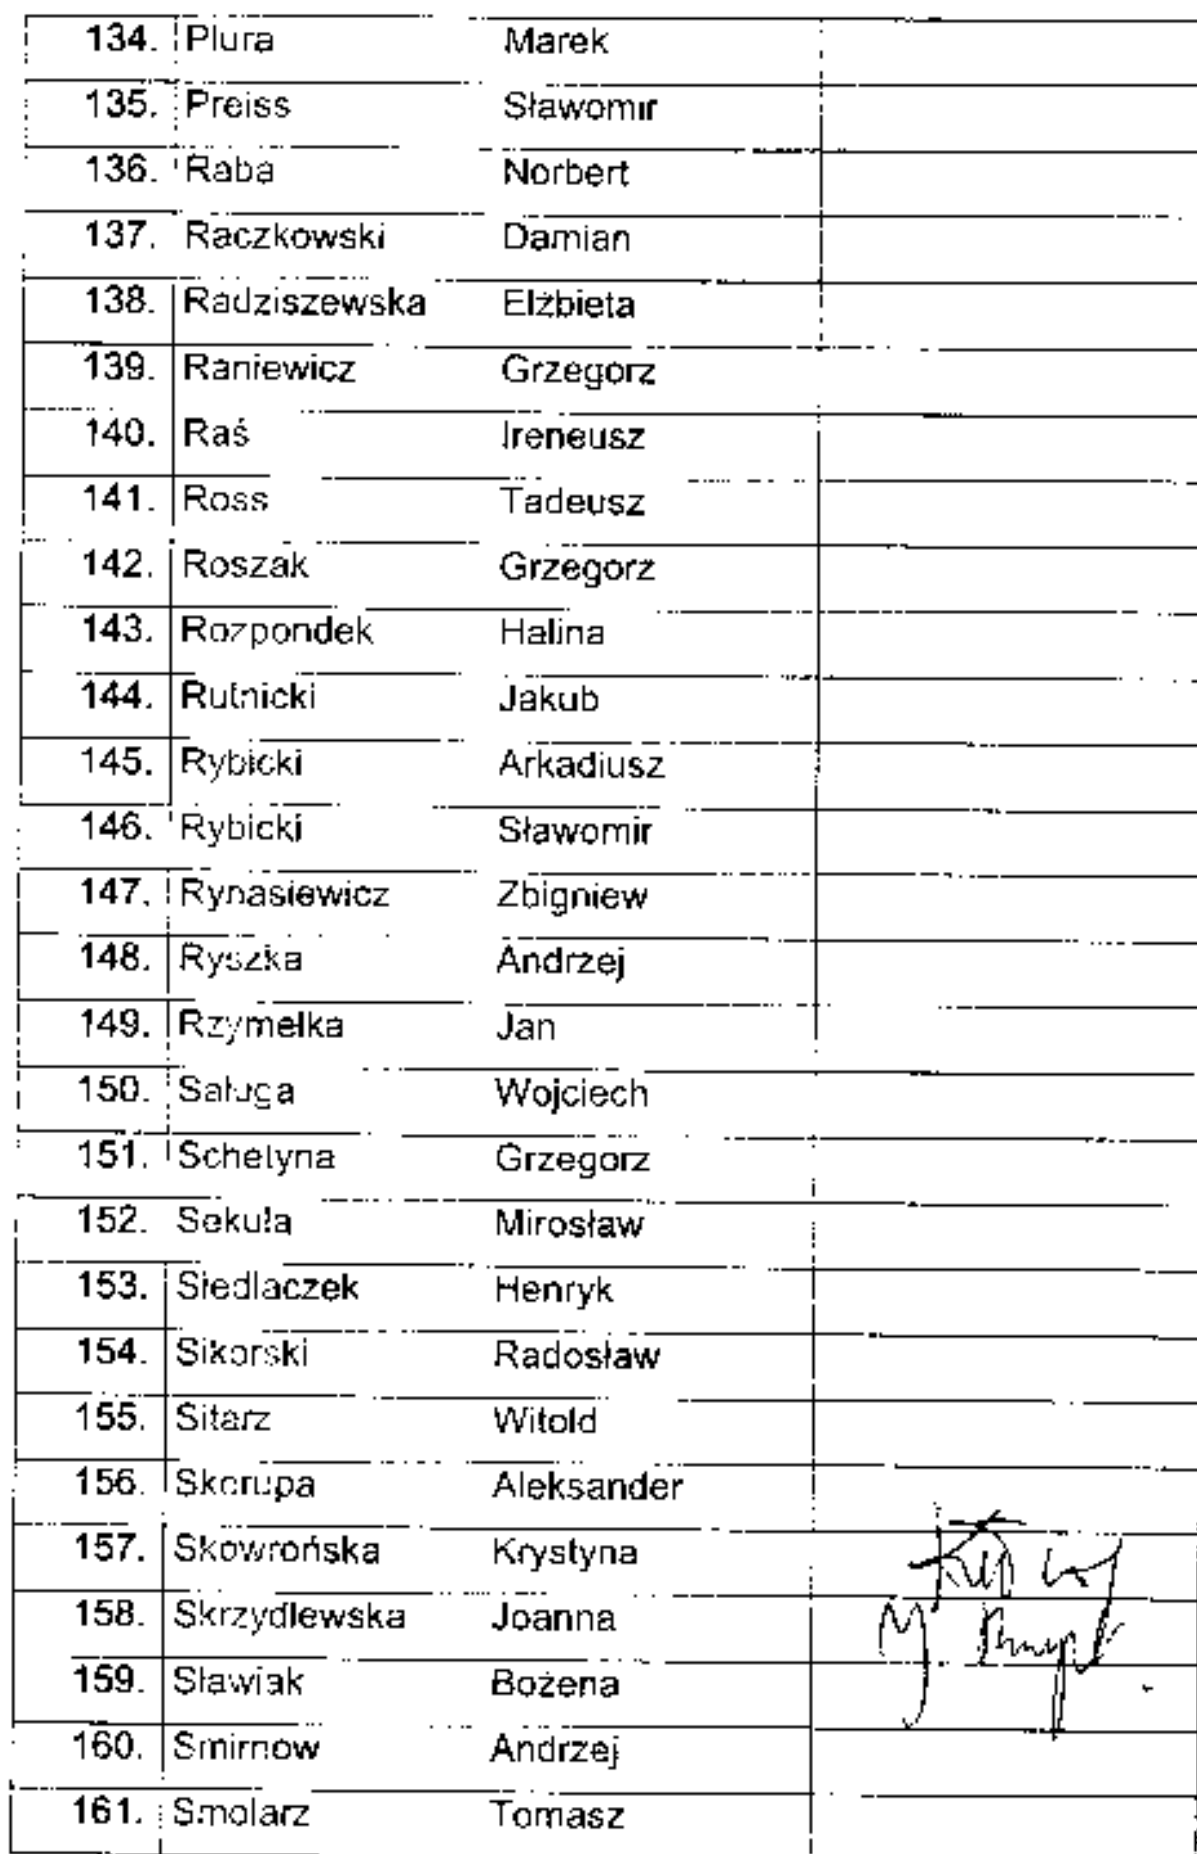 134. Plura Marek
135. Preiss Sławomir
136. Raba Norbert
137. Raczkowski Damian
138. Radziszewska Elżbieta
139. Raniewicz Grzegorz
140. Raś Ireneusz
141. Ross Tadeusz
142. Roszak Grzegorz
143. Rozpondek Halina
144. Rutnicki Jakub
145. Rybicki Arkadiusz
146. Rybicki Sławomir
147. Rynasiewicz Zbigniew
148. Ryszka Andrzej
149. Rzymełka Jan
150. Saługa Wojciech
151. Schetyna Grzegorz
152. Sekuła Mirosław
153. Siedlaczek Henryk
154. Sikorski Radosław
155. Sitarz Witold
156. Skorupa Aleksander
157. Skowrońska Krystyna
158. Skrzydlewska Joanna
159. Sławiak Bożena
160. Smirnow Andrzej
161. Smolarz Tomasz